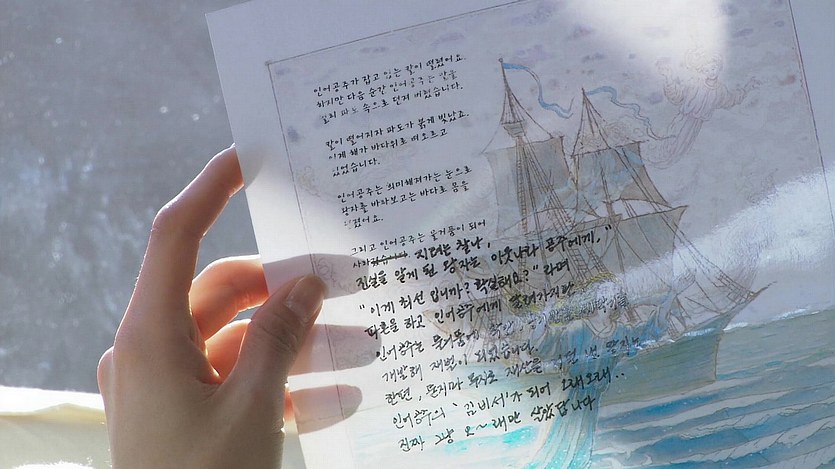 인어공주가 잡고 있는 칼이 떨렸어요.
하지만 다음 순간 인어공주는 칼을
멀리 파도 속으로 던져 버렸습니다.
칼이 떨어지자 파도가 붉게 빛났죠.
이제 해가 바다위로 떠오르고
있었습니다.
인어공주는 희미해져가는 눈으로
왕자를 바라보고는 바다로 몸을
던졌어요.
그리고 인어공주는 물거품이 되어
사라졌습니다 지려는 찰나,
진실을 알게 된 왕자는 이웃나라 공주에게,"
"이게 최선 입니까? 확실해요?" 라며
파혼을 하고 인어공주에게 달려가지만
인어공주는 물거품에
개발해 재벌이 되었습니다.
한편, 묻지마 투자로 재산을
인어공주의 '김비서'가 되어 오래오래..
진짜 그냥 오~래만 살았답니다